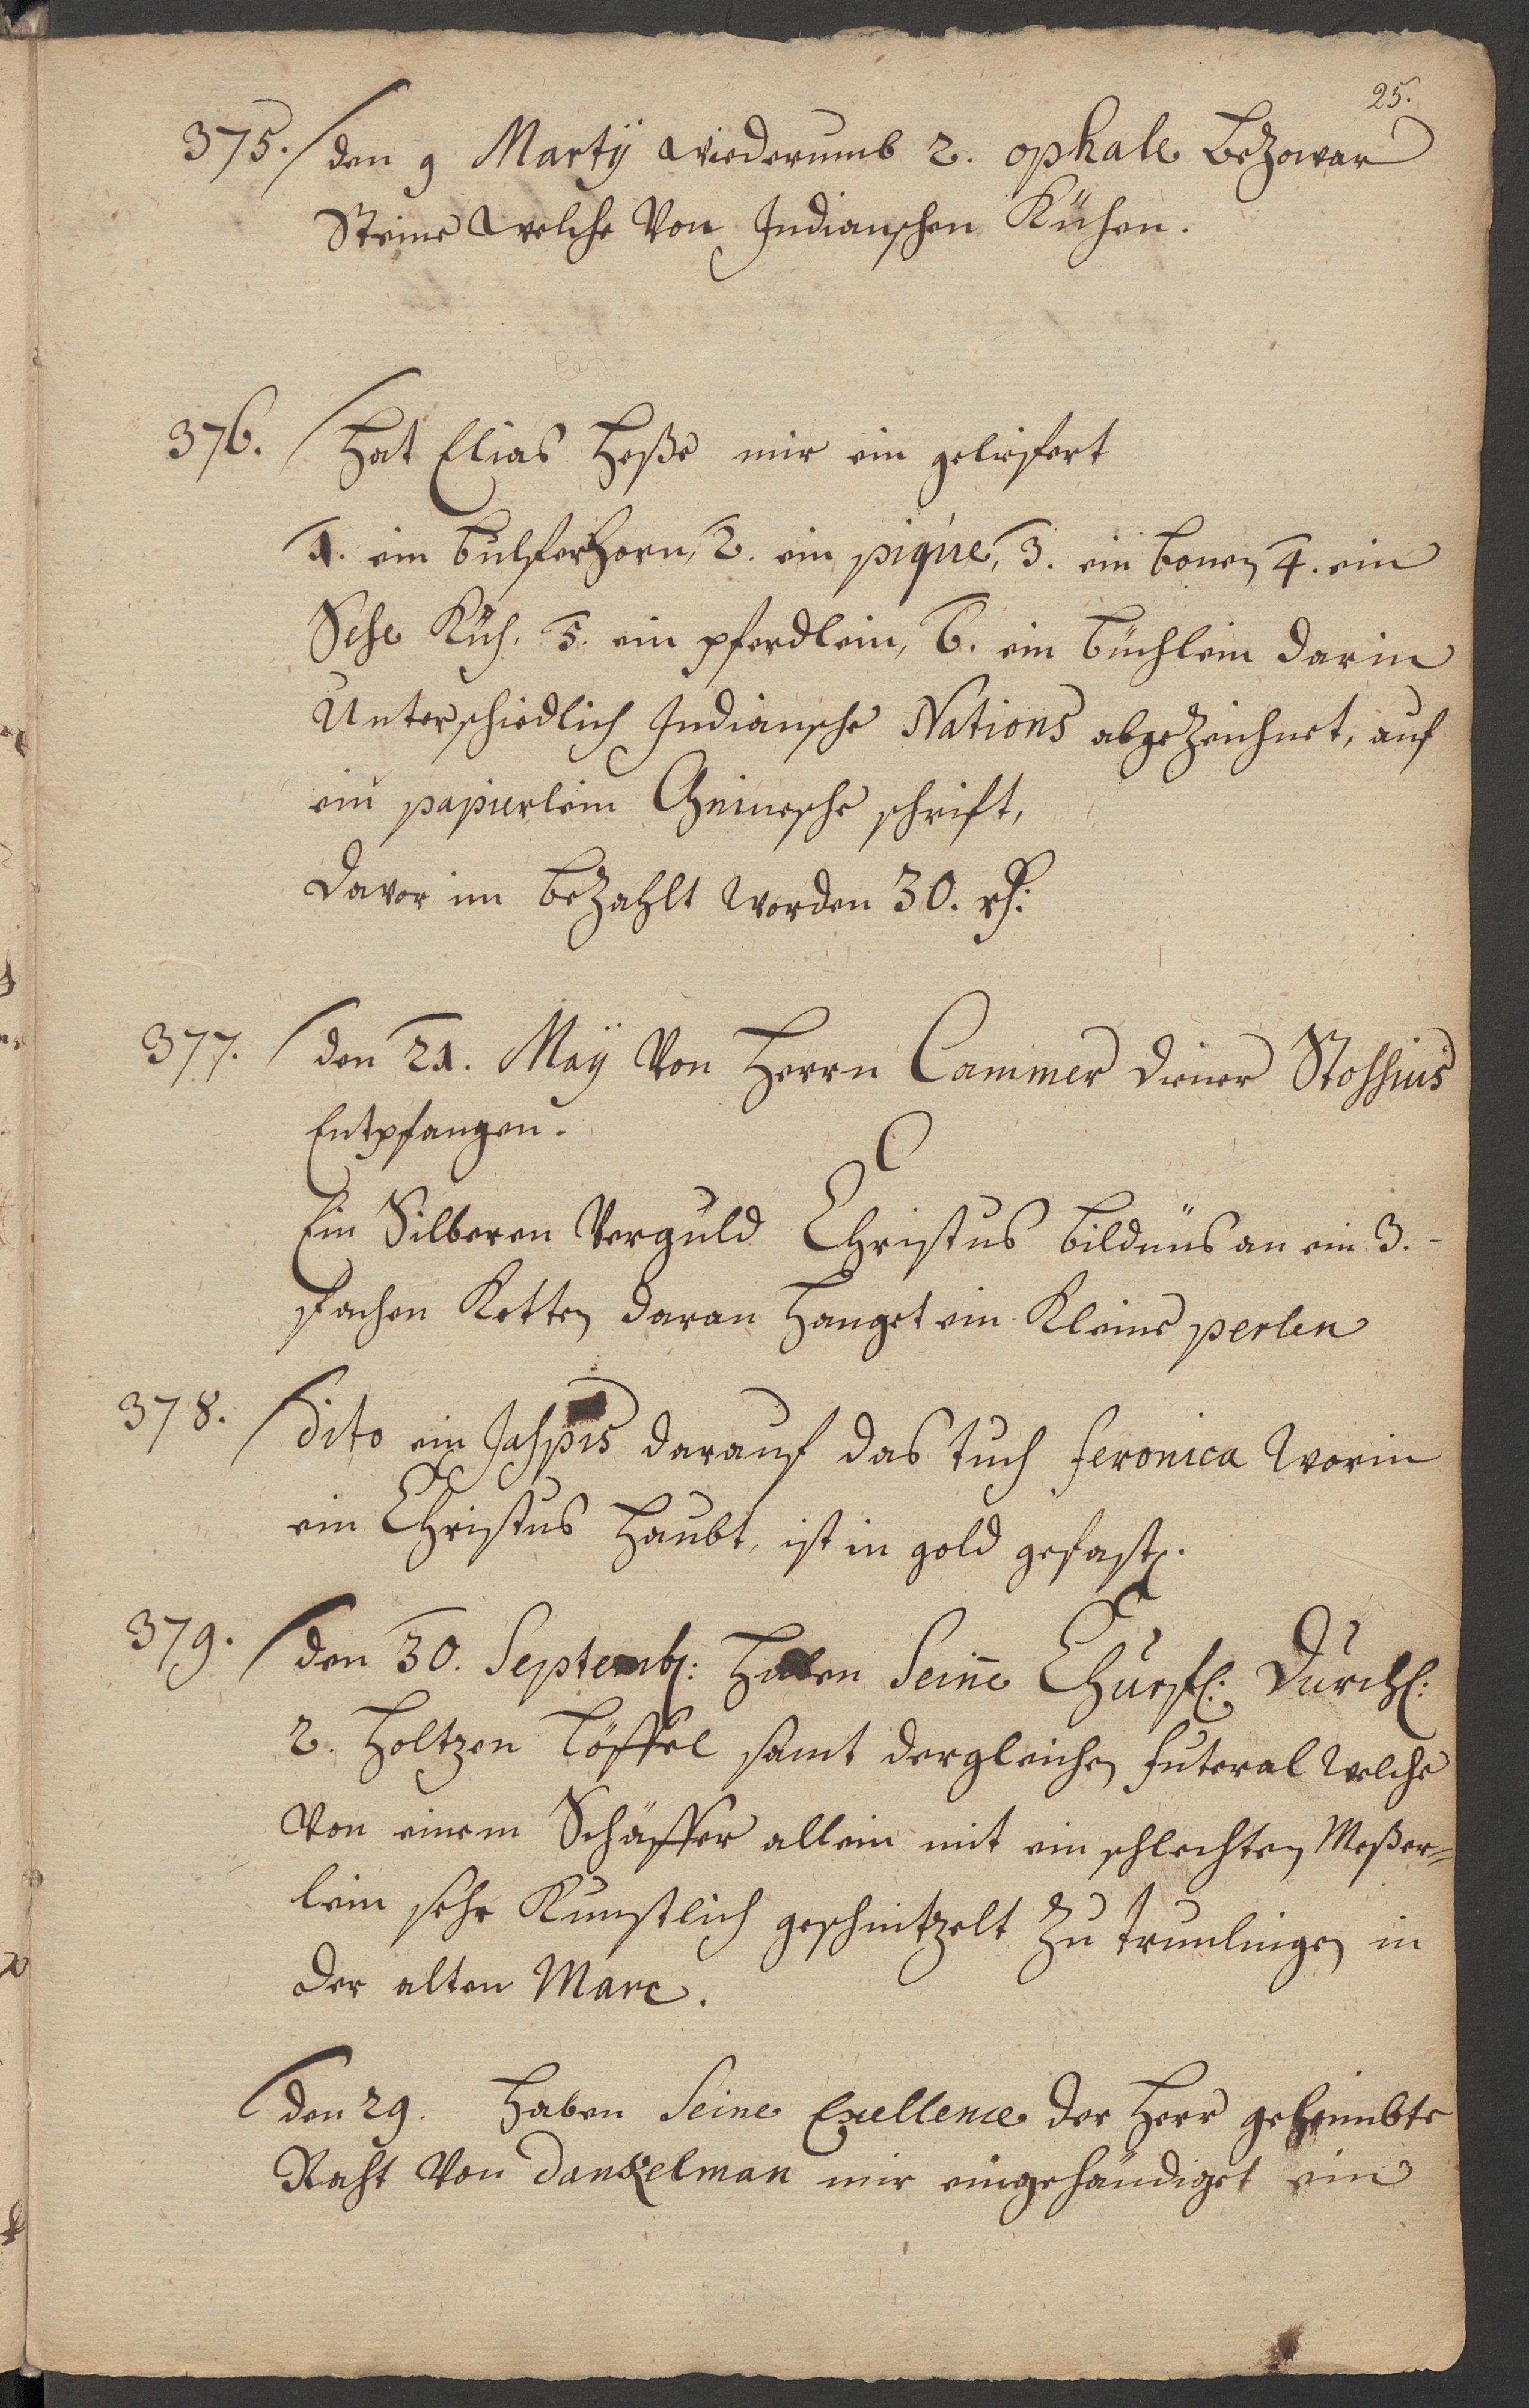 25.
375. den 9 Martÿ wiederumb 2. ophale Bezowar
Steine welche Von Indianschen Kühen.
376. Hat Elias Heße mir ein geliefert
1. ein bulferhorn, 2. ein piqúe, 3. ein bouen 4. ein
Sehe Küh. 5. ein pferdlein, 6. ein büchlein darin
Unterschiedlich Indiansche Nations abgezeichnet, auf
ein papierlein Chinesche schrift,
davor im bezahlt worden 30. rh:
377. den 21. Maÿ Von Herrn Cammer diener Stossius
Entpfangen.
Ein Silberen Verguld Christus bildnüs an ein 3.-
fachen Ketten daran hanget ein Kleine perlen
378. dito ein Jaspis darauf das tuch feronica worin
ein Christus haubt, ist in gold gefast.
379. den 30. Septemb: haben Seine Churfl: Durchl:
2. holtzen löffel samt dergleichen futeral welche
Von einem Schäffer allein mit ein schlechten Meßer=
lein sehr Kunstlich geschnitzelt zu trumlingen in
der alten Marc.
den 29. haben Seine Excellence der Herr geheimbte
Raht Von Dankelman mir eingehändiget ein